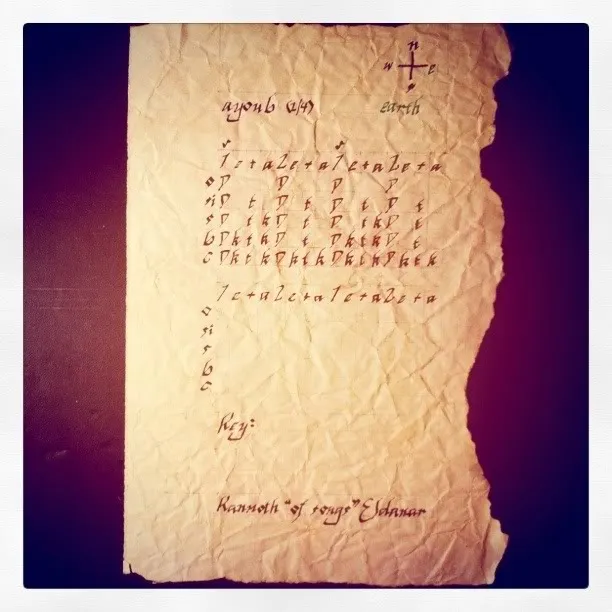 n
w e
s
ayoub (2/4) earth
s s
1 e + a 2 e + a 1 e + a 2 e + a
o D D D D
si D t D t D t D t
s D t k D t D t k D t
b D k t k D t D k t k D t
c D k t k D k t k D k t k D k t k
1 e + a 2 e + a 1 e + a 2 e + a
o
si
s
b
c
Key:
Rannoth "of songs" Eldanar